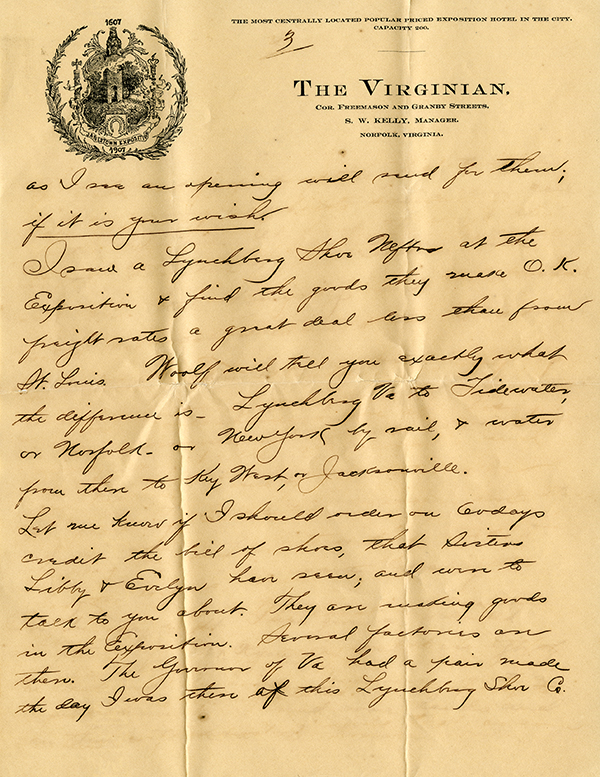 THE MOST CENTRALLY LOCATED POPULAR PRICED EXPOSITION HOTEL IN THE CITY.
CAPACITY 200.
3
1607
JAMESTOWN EXPOSITION
1907
THE VIRGINIAN,
COR. FREEMASON AND GRANBY STREETS,
S. W. KELLY, MANAGER.
NORFOLK, VIRGINIA.
as I see an opening will send for them,
if it is your wish.
I saw a Lynchberg Shoe at the
Exposition & find the goods they make O.K.
freight rates a great deal less than from
St. Louis. Woolf will tell you exactly what
the difference is - Lynchberg Va to Tidewater,
or Norfolk - or New York by rail, & water
from there to Key West, or Jacksonville.
Let me know if I should order on 60 days
credit the bill of shoes, that Sisters
Libby & Evelyn have seen; and were to
talk to you about. They are making goods
in the Exposition. Several factories are
there. The Govornor of Va had a pair made
the day I was there of this Lynchberg Shoe Co.